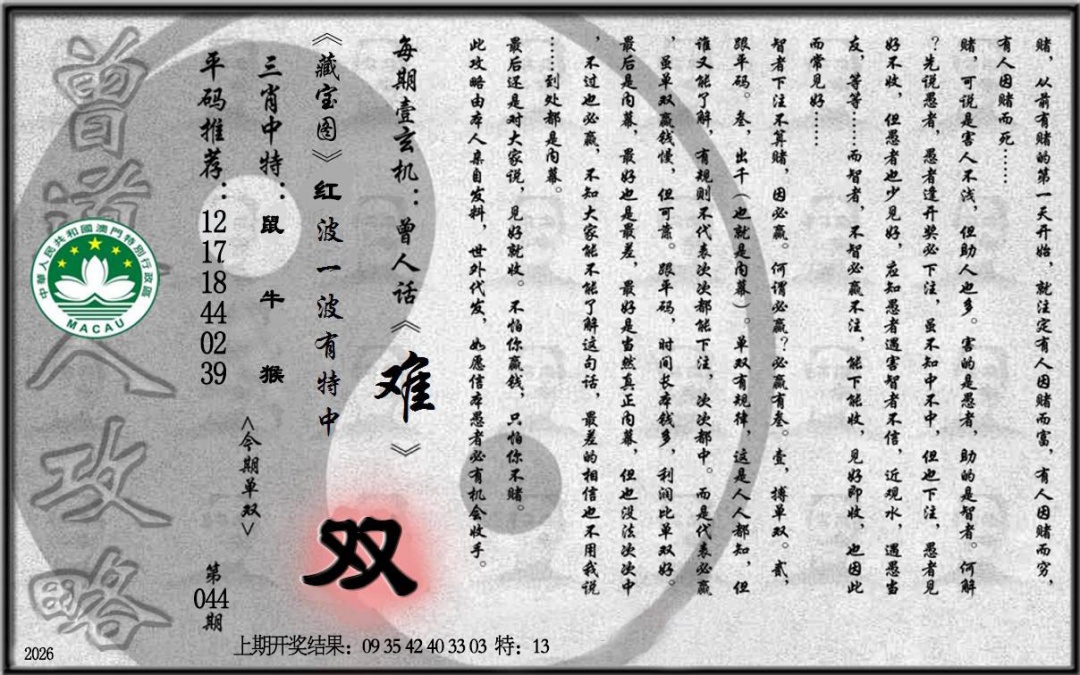 赌，从前有赌的第一天开始，就注定有人因赌而富，有人因赌而穷，
有人因赌而死……
赌，可说是害人不浅，但助人也多。害的是愚者，助的是智者。何解
？先说愚者，愚者逢开奖必下注，虽不知中不中，但也下注，愚者见
好不收，但愚者也少见好，应知愚者遇害智者不信，近观水，遇愚当
友，等等……而智者，不智必赢不注，能下能收，见好即收，也因此
而常见好……
智者下注不算赌，因必赢。何谓必赢？必赢有叁。壹，搏单双。贰，
跟平码。叁，出千（也就是内幕）。单双有规律，这是人人都知，但
谁又能了解，有规则不代表次次都能下注，次次都中。而是代表必赢
，虽单双赢钱慢，但可靠。跟平码，时间长本钱多，利润比单双好。
最后是内幕，最好也是最差，最好是当然真正内幕，但也没法次次中
，不过也必赢，不知大家能不能了解这句话，最差的相信也不用我说
……到处都是内幕。
最后还是对大家说，见好就收。不怕你赢钱，只怕你不赌。
此攻略由本人亲自发料，世外代发，如愿信本愚者必有机会收手。
每期壹玄机：曾人话《难》
《藏宝图》红波一波有特中
双
三肖中特：鼠 牛 猴
<今期单双>
平码推荐：12 17 18 44 02 39
第044期
曾道人攻略
中華人民共和國澳門特別行政區
MACAU
上期开奖结果：09 35 42 40 33 03 特：13
2026